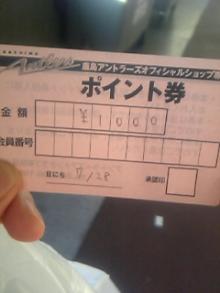 KASHIMA
Antlers
鹿島アントラーズオフィシャルショップ
ポイント券
金額 ￥1000
会員番号
日にち 7/28 承認印